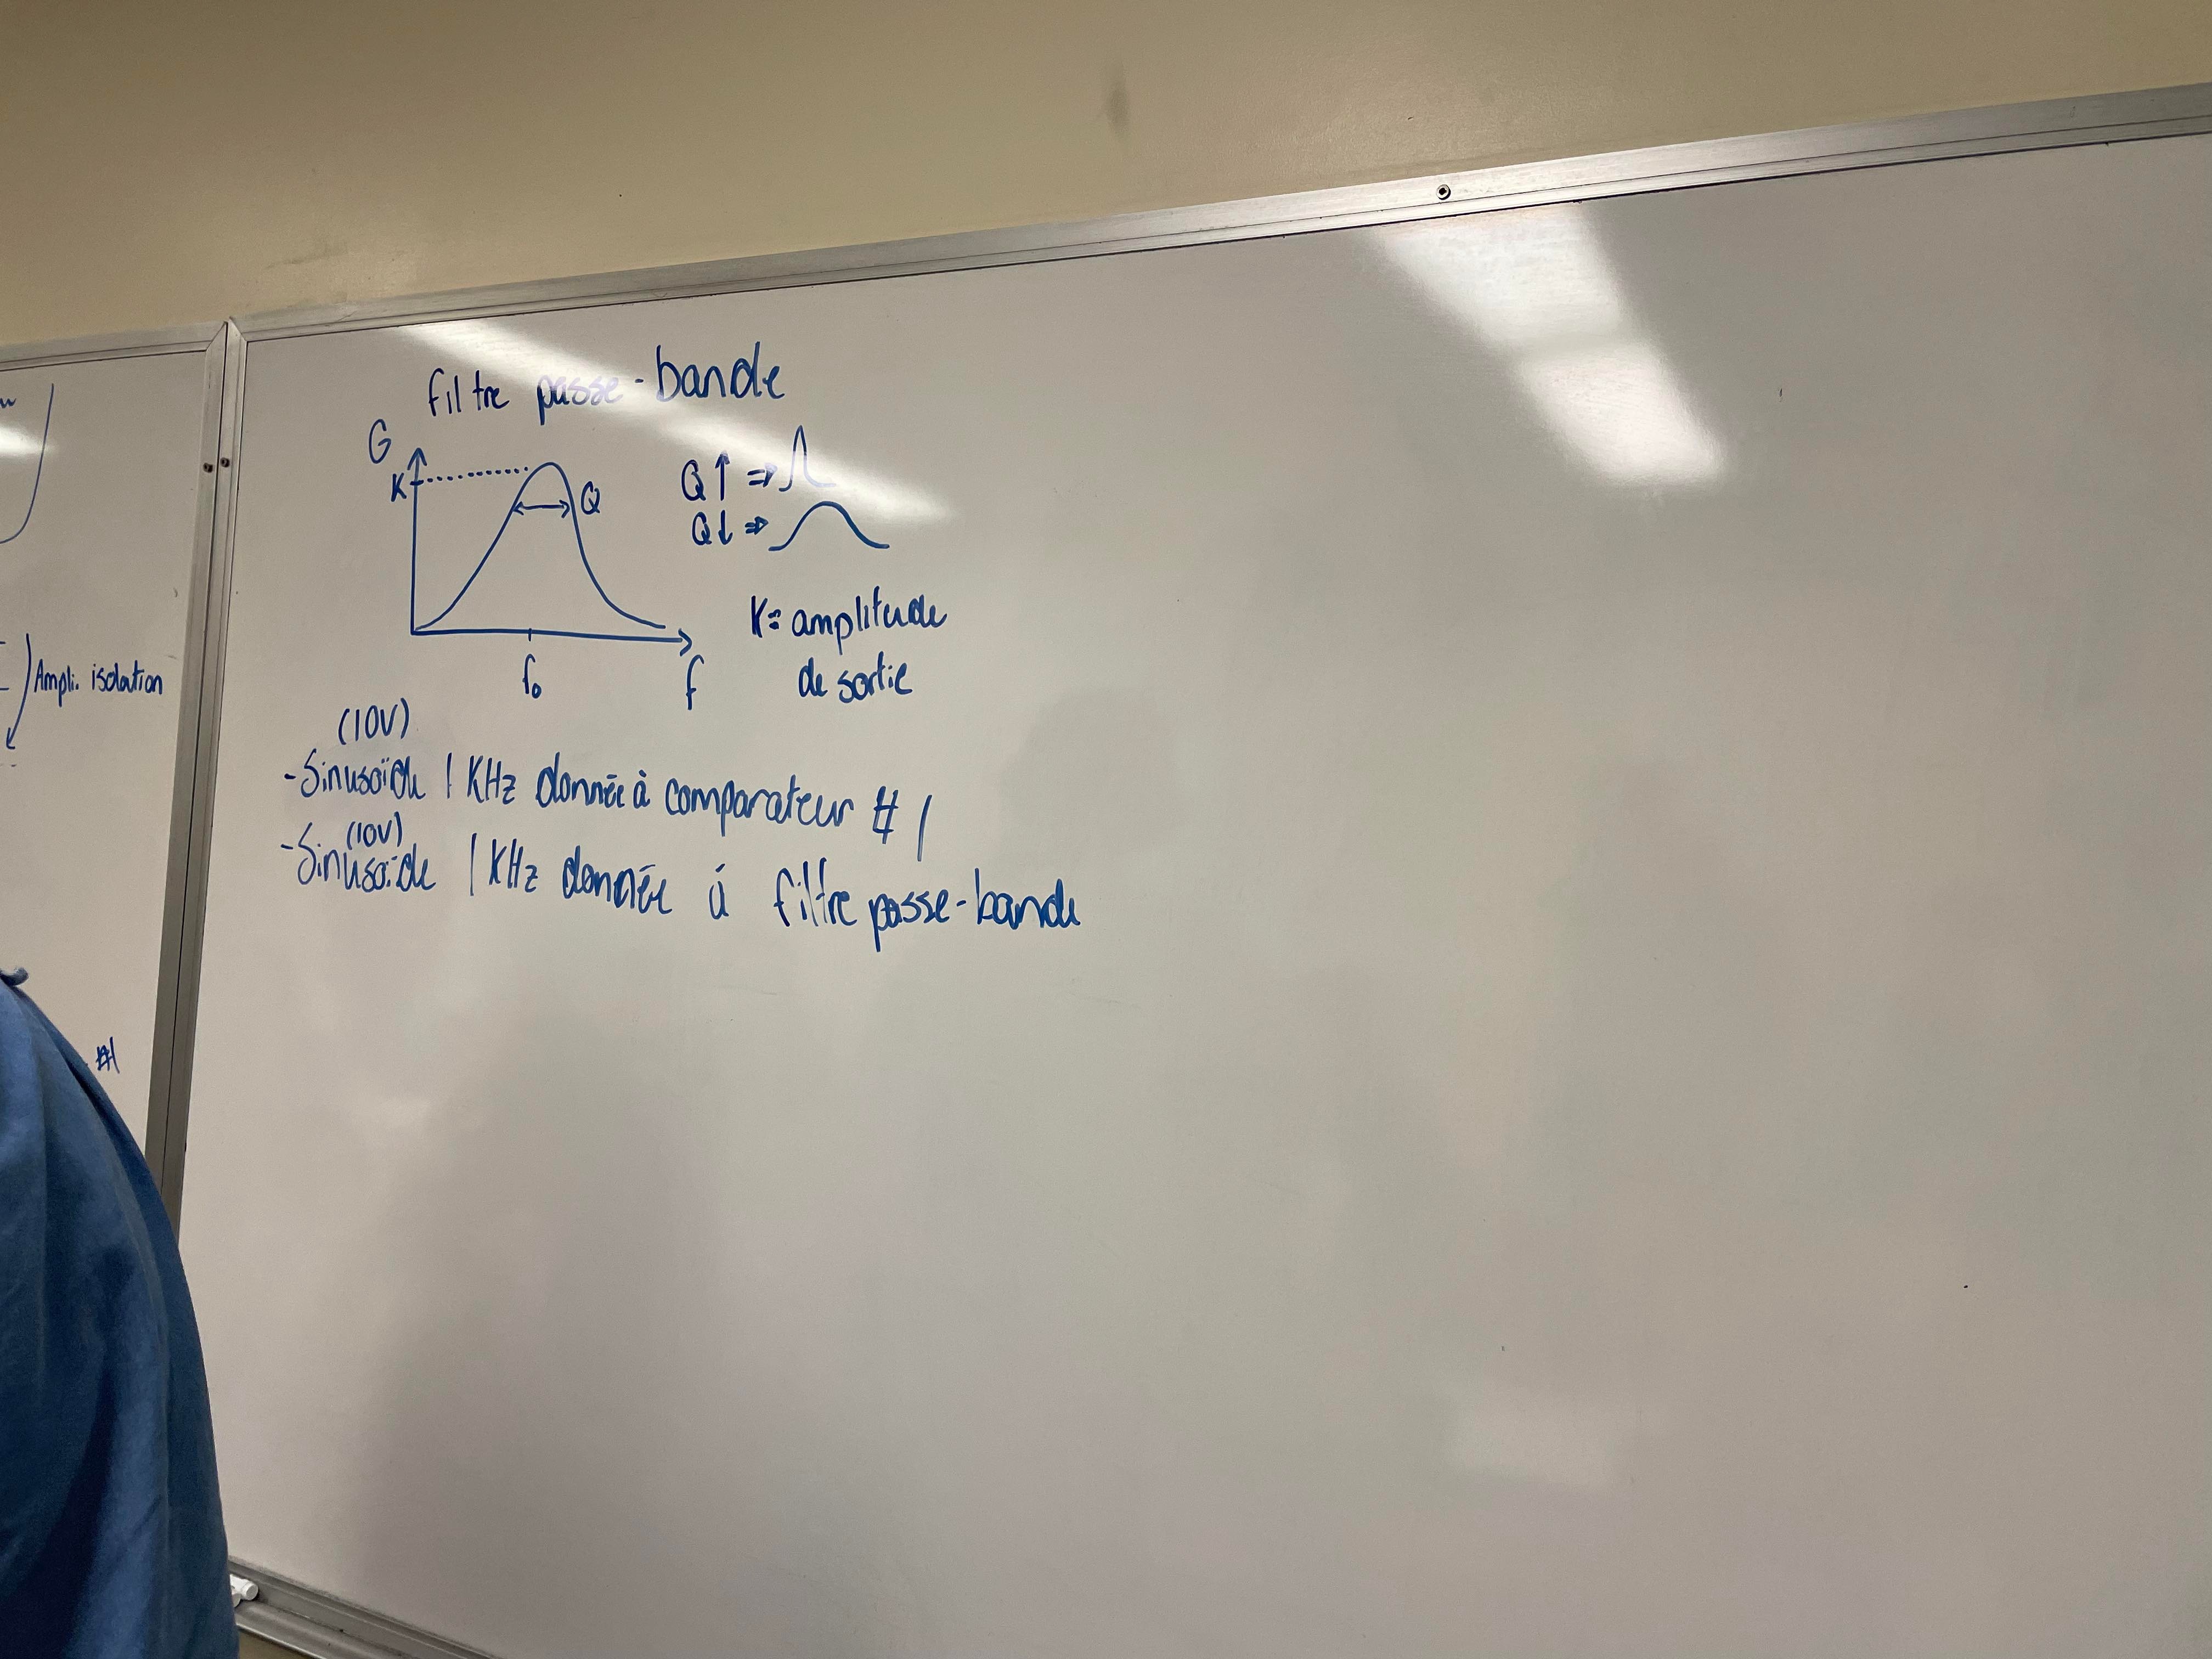 Ampli. isolation
#1
filtre passe-bande
G
K
Q
f₀
f
Q↑ ⇒
Q↓ ⇒
K = amplitude
de sortie
(10V)
-Sinusoïde 1 KHz donnée à comparateur #1
(10V)
-Sinusoïde 1 KHz donnée à filtre passe-bande